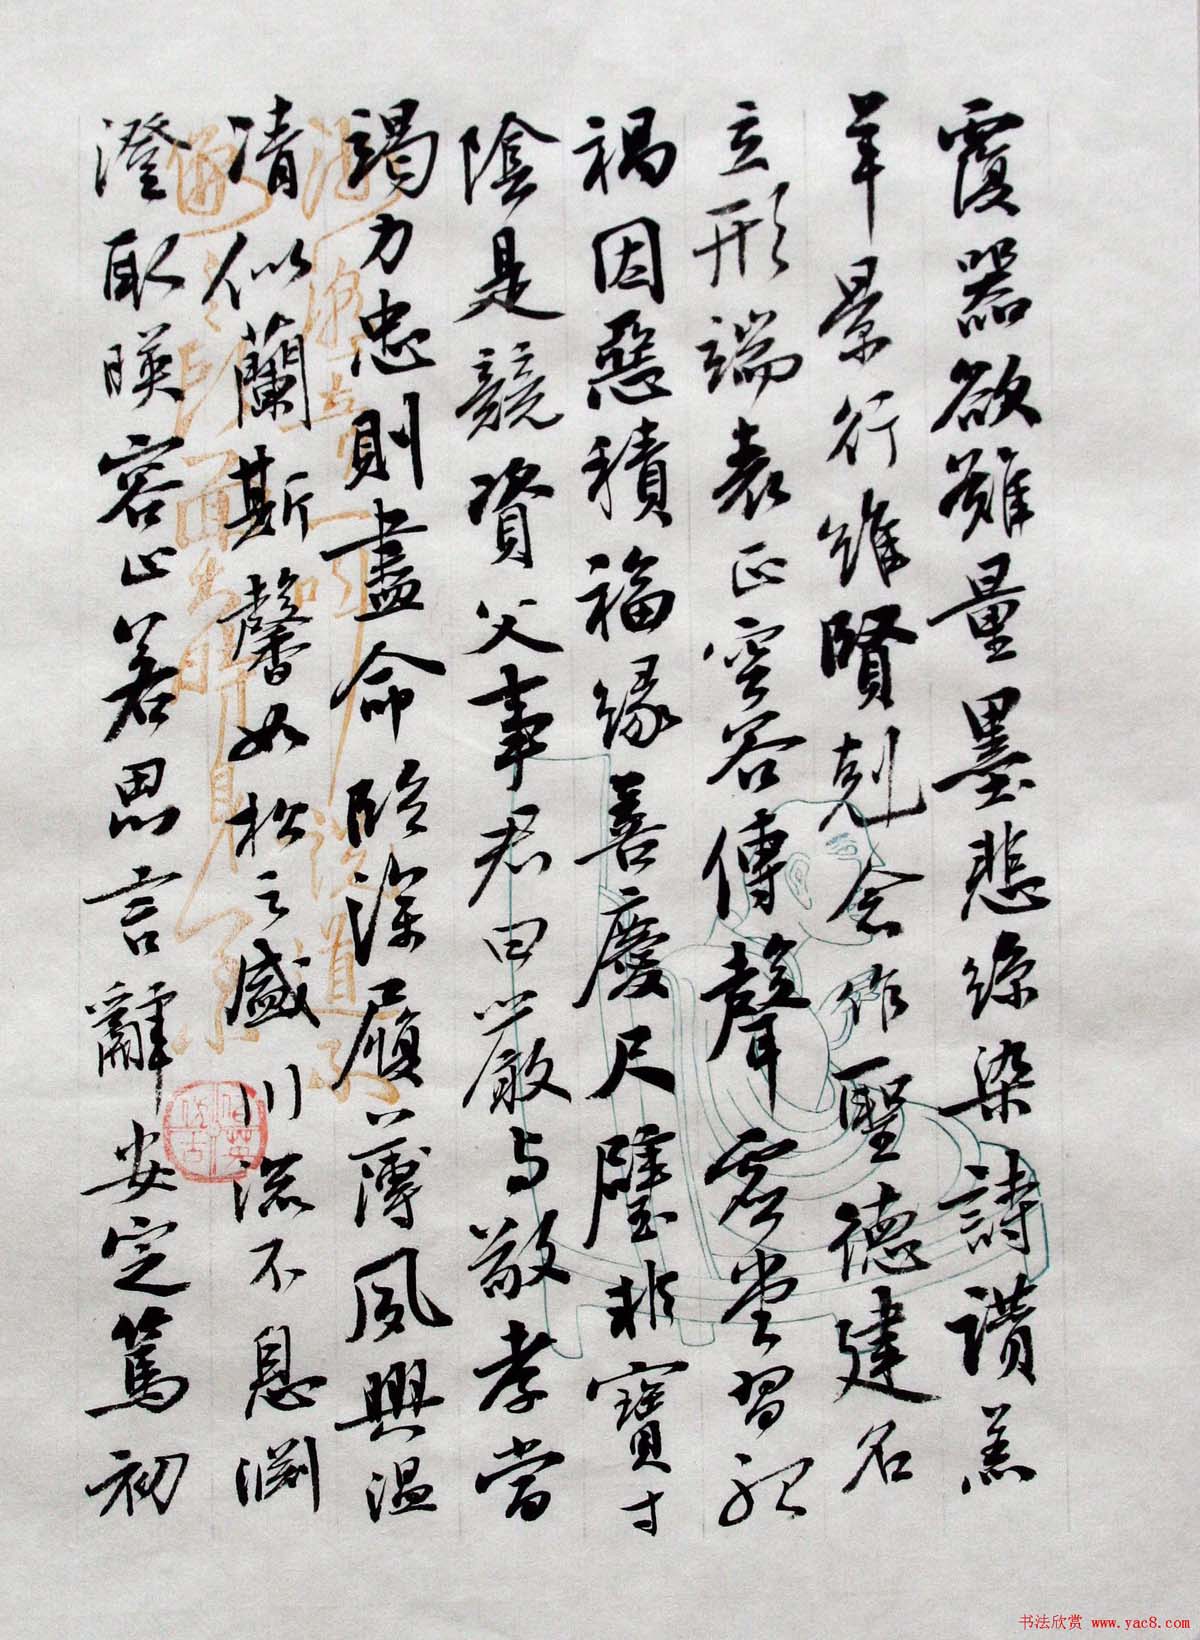 覆器欲難量墨悲絲染詩讚羔
羊景行維賢剋念作聖德建名
立形端表正空谷傳聲虛堂習聽
禍因惡積福緣善慶尺璧非寶寸
陰是競資父事君曰嚴与敬孝當
竭力忠則盡命臨深履薄夙興温
凊似蘭斯馨如松之盛川流不息淵
澄取暎容止若思言辭安定篤初
书法欣赏 www.yac8.com